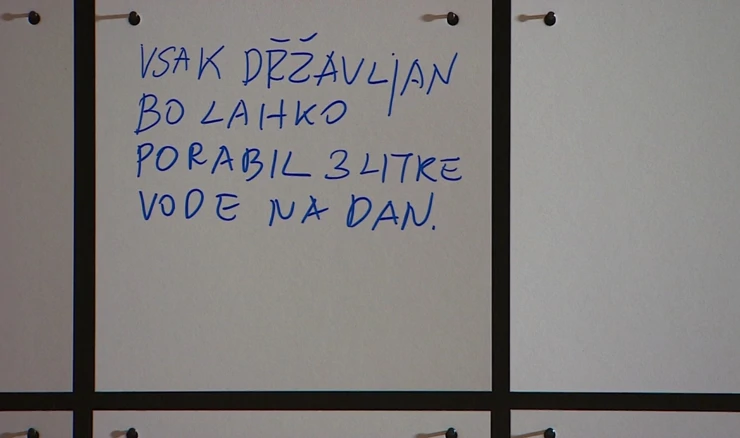 VSAK DRŽAVLJAN
BO LAHKO
PORABIL 3 LITRE
VODE NA DAN.